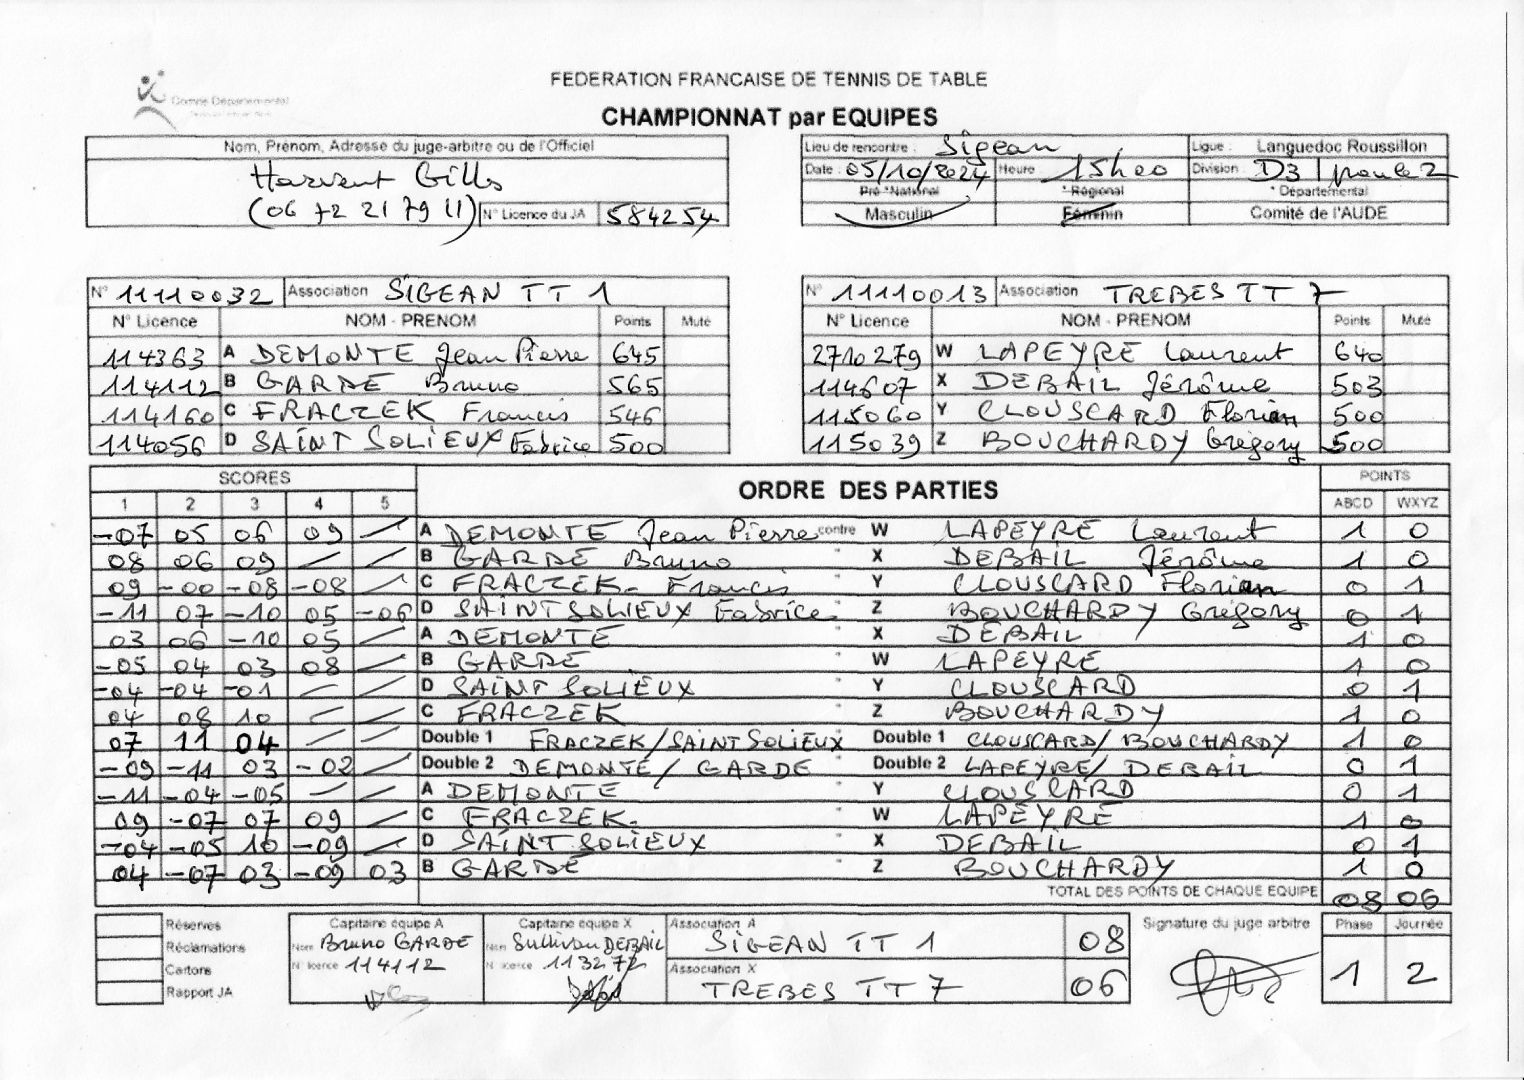 Comité Départemental
FEDERATION FRANCAISE DE TENNIS DE TABLE
CHAMPIONNAT par EQUIPES
Nom, Prénom, Adresse du juge-arbitre ou de l'Officiel
Harvent Gills
(06 72 21 79 11) N° Licence du JA 584254
Lieu de rencontre : Sigean Ligue : Languedoc Roussillon
Date : 05/10/2024 Heure 15h00 Division : D3 / poule 2
Pré-*National *Régional *Départemental
Masculin Féminin Comité de l'AUDE
N° 11110032 Association SIGEAN TT 1
N° Licence NOM - PRENOM Points Muté
114363 A DEMONTE Jean Pierre 645
114112 B GARDE Bruno 565
114160 C FRACZEK Francis 546
114056 D SAINT SOLIEUX Fabrice 500
N° 11110013 Association TREBES TT 7
N° Licence NOM - PRENOM Points Muté
2710279 W LAPEYRE Laurent 640
114607 X DEBAIL Jérôme 503
115060 Y CLOUSCARD Florian 500
115039 Z BOUCHARDY Grégory 500
SCORES ORDRE DES PARTIES POINTS
1 2 3 4 5 ABCD WXYZ
-07 05 06 09 / A DEMONTE Jean Pierre contre W LAPEYRE Laurent 1 0
08 06 09 / / B GARDE Bruno " X DEBAIL Jérôme 1 0
09 -00 -08 -08 / C FRACZEK Francis " Y CLOUSCARD Florian 0 1
-11 07 -10 05 -06 D SAINT SOLIEUX Fabrice " Z BOUCHARDY Grégory 0 1
03 06 -10 05 / A DEMONTE " X DEBAIL 1 0
-05 04 03 08 / B GARDE " W LAPEYRE 1 0
-04 -04 -01 / / D SAINT SOLIEUX " Y CLOUSCARD 0 1
04 08 10 / / C FRACZEK " Z BOUCHARDY 1 0
07 11 04 / / Double 1 FRACZEK/SAINT SOLIEUX Double 1 CLOUSCARD/BOUCHARDY 1 0
-09 -11 03 -02 / Double 2 DEMONTE/GARDE Double 2 LAPEYRE/DEBAIL 0 1
-11 -04 -05 / / A DEMONTE " Y CLOUSCARD 0 1
09 -07 07 09 / C FRACZEK " W LAPEYRE 1 0
-04 -05 10 -09 / D SAINT SOLIEUX " X DEBAIL 0 1
04 -07 03 -09 03 B GARDE " Z BOUCHARDY 1 0
TOTAL DES POINTS DE CHAQUE EQUIPE 08 06
Réserves
Réclamations
Cartons
Rapport JA
Capitaine équipe A
Nom Bruno GARDE
N° licence 114112
Capitaine équipe X
Nom Sullivan DEBAIL
N° licence 113272
Association A
SIGEAN TT 1 08
Association X
TREBES TT 7 06
Signature du juge arbitre
Phase Journée
1 2